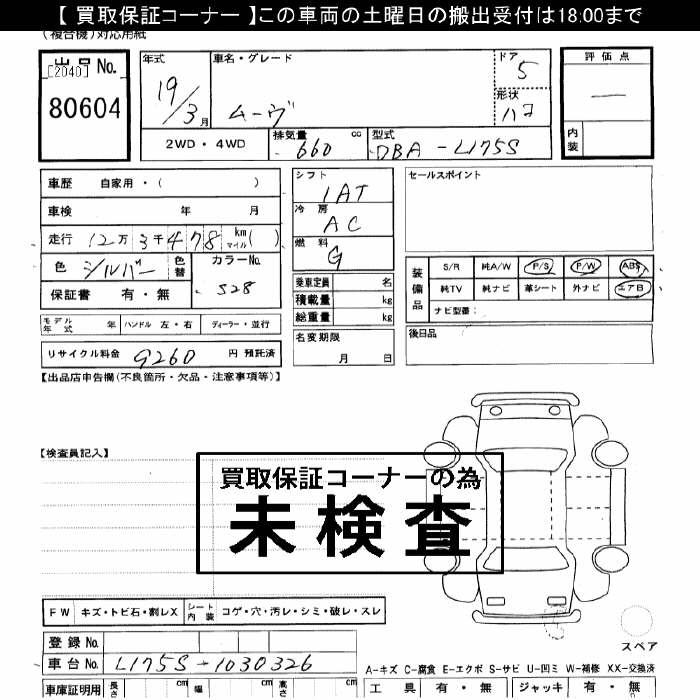 【 買取保証コーナー 】この車両の土曜日の搬出受付は18:00まで
(複合機)対応用紙
出品 No.
[2040]
80604
年式
19/3月
車名・グレード
ムーヴ
ドア
5
形状
ハコ
2WD・4WD
排気量 cc
660
型式
DBA-L175S
評価点
内装
車歴 自家用・( )
車検 年 月
走行 12万3千478 km マイル( )
色 シルバー 色替
カラーNo.
S28
保証書 有・無
モデル年式 年 ハンドル 左・右 ディーラー・並行
リサイクル料金 9260 円 預託済
シフト
IAT
冷房
AC
燃料
G
乗車定員 名
積載量 kg
総重量 kg
名変期限
月 日
セールスポイント
装備品
S/R 純A/W P/S P/W ABS
純TV 純ナビ 革シート 外ナビ エアB
ナビ型番:
後日品
【出品店申告欄(不良箇所・欠品・注意事項等)】
【検査員記入】
買取保証コーナーの為
未検査
FW キズ・トビ石・割レX シート内装 コゲ・穴・汚レ・シミ・破レ・スレ
登録 No.
車台 No. L175S-1030326
車庫証明用 長さ cm 幅 cm 高さ cm
スペア
A-キズ C-腐食 E-エクボ S-サビ U-凹ミ W-補修 XX-交換済
工具 有・無 ジャッキ 有・無